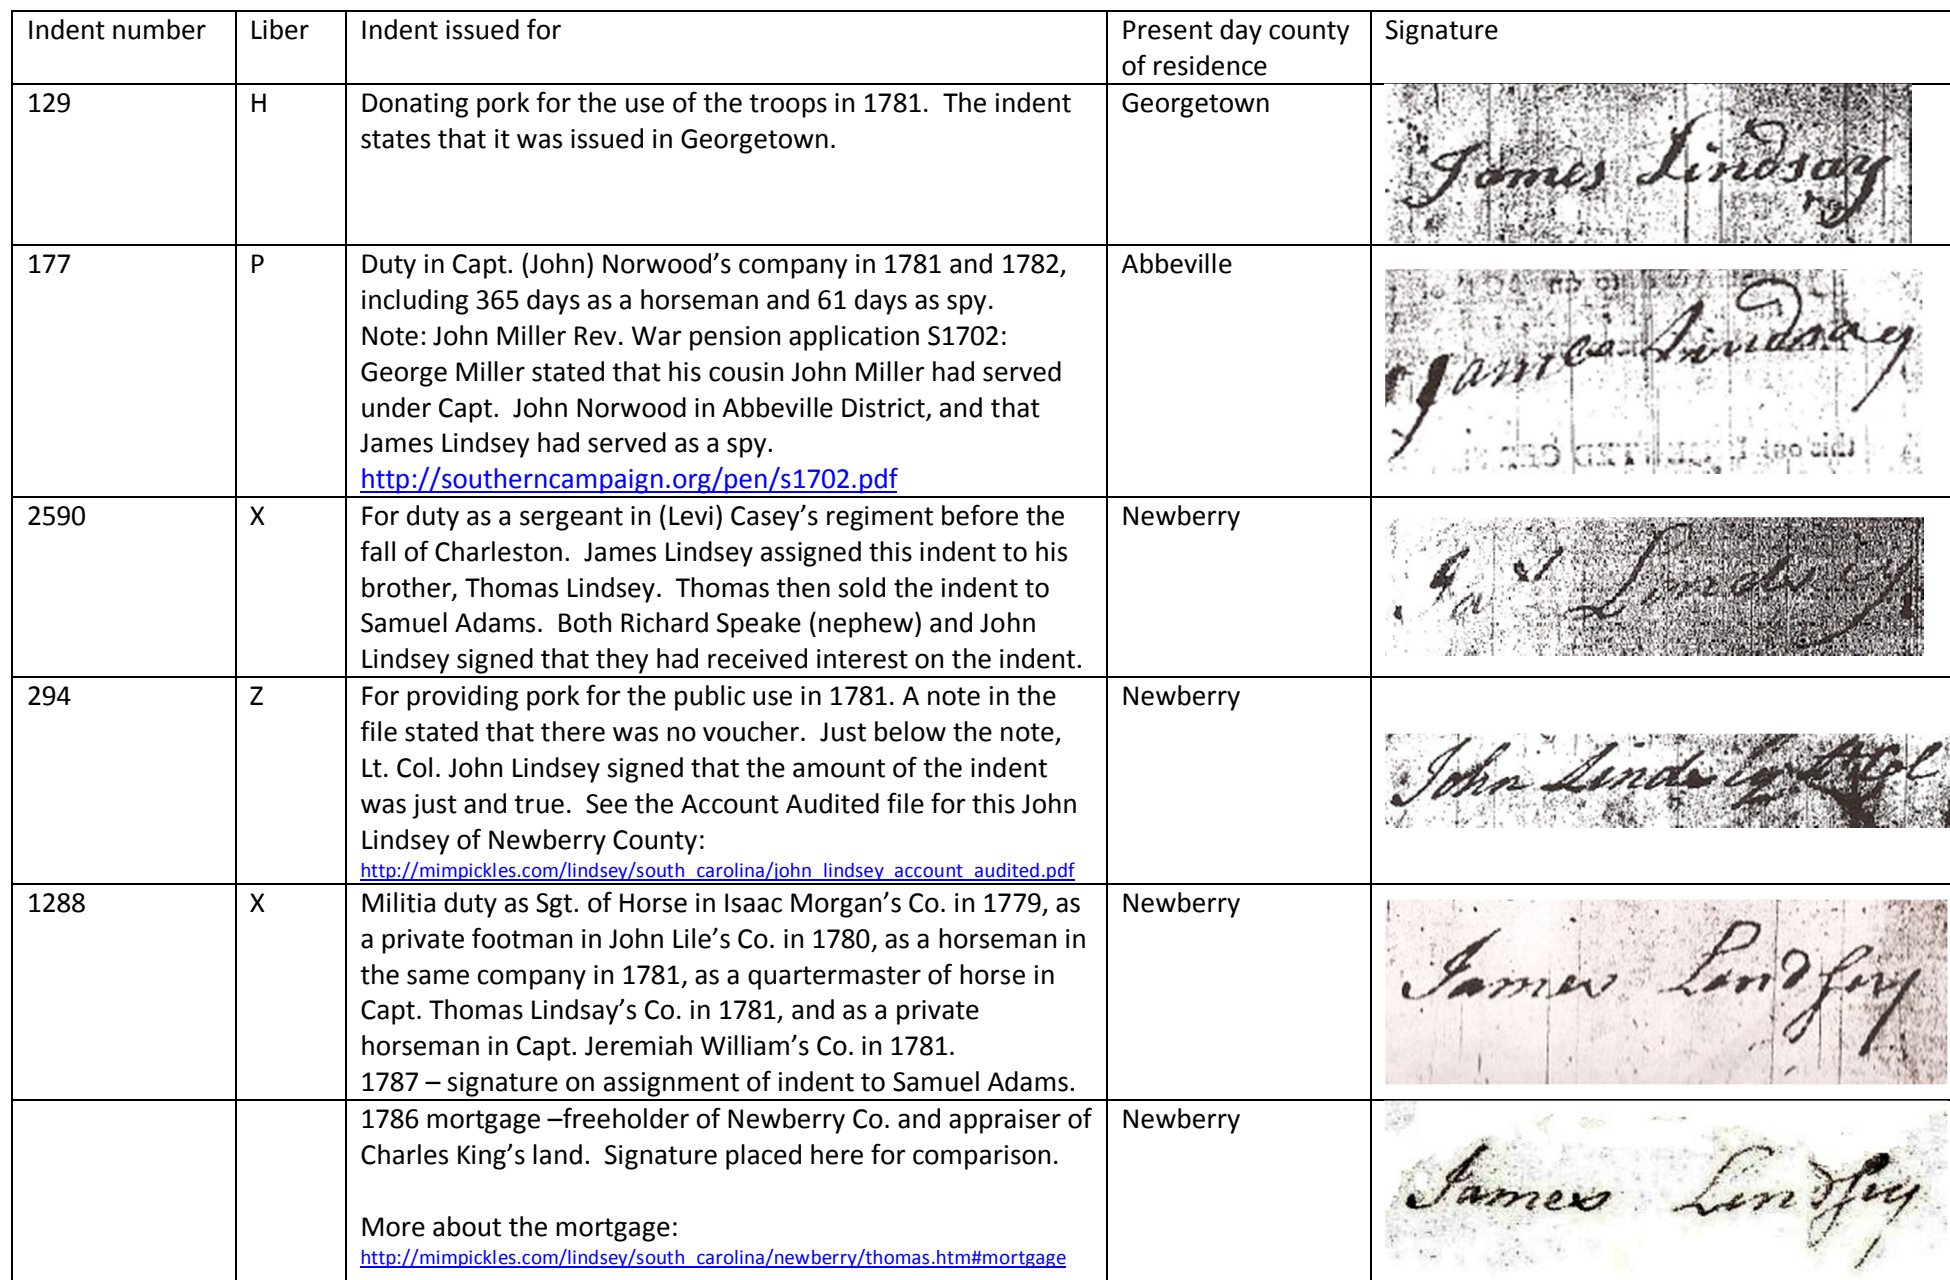 Indent number
Liber
Indent issued for
Present day county
of residence
Signature
129
H
Donating pork for the use of the troops in 1781.  The indent
states that it was issued in Georgetown.
Georgetown
James Lindsay
177
P
Duty in Capt. (John) Norwood’s company in 1781 and 1782,
including 365 days as a horseman and 61 days as spy.
Note: John Miller Rev. War pension application S1702:
George Miller stated that his cousin John Miller had served
under Capt.  John Norwood in Abbeville District, and that
James Lindsey had served as a spy.
http://southerncampaign.org/pen/s1702.pdf
Abbeville
James Lindsay
2590
X
For duty as a sergeant in (Levi) Casey’s regiment before the
fall of Charleston.  James Lindsey assigned this indent to his
brother, Thomas Lindsey.  Thomas then sold the indent to
Samuel Adams.  Both Richard Speake (nephew) and John
Lindsey signed that they had received interest on the indent.
Newberry
Jas Lindsey
294
Z
For providing pork for the public use in 1781. A note in the
file stated that there was no voucher.  Just below the note,
Lt. Col. John Lindsey signed that the amount of the indent
was just and true.  See the Account Audited file for this John
Lindsey of Newberry County:
http://mimpickles.com/lindsey/south_carolina/john_lindsey_account_audited.pdf
Newberry
John Lindsey Lt Col
1288
X
Militia duty as Sgt. of Horse in Isaac Morgan’s Co. in 1779, as
a private footman in John Lile’s Co. in 1780, as a horseman in
the same company in 1781, as a quartermaster of horse in
Capt. Thomas Lindsay’s Co. in 1781, and as a private
horseman in Capt. Jeremiah William’s Co. in 1781.
1787 – signature on assignment of indent to Samuel Adams.
Newberry
James Lindsey
1786 mortgage –freeholder of Newberry Co. and appraiser of
Charles King’s land.  Signature placed here for comparison.
More about the mortgage:
http://mimpickles.com/lindsey/south_carolina/newberry/thomas.htm#mortgage
Newberry
James Lindsey